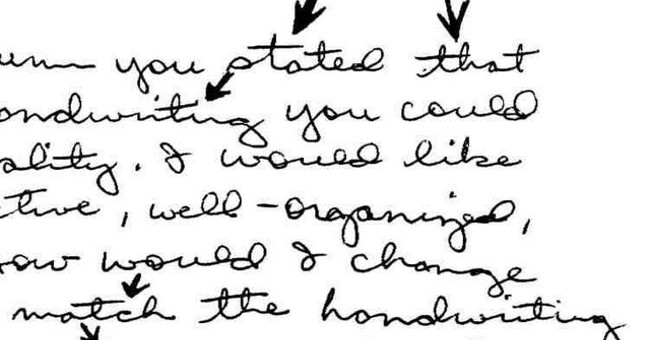 you stated that
handwriting you could
ality. I would like
ctive, well-organized,
ow would I change
match the handwriting